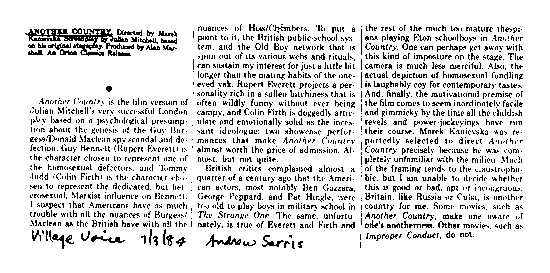 ANOTHER COUNTRY. Directed by Marek
Kanievska. Screenplay by Julian Mitchell, based
on his original stageplay. Produced by Alan Mar-
shall. An Orion Classics Release.
Another Country is the film version of
Julian Mitchell's very successful London
play based on a psychological presump-
tion about the genesis of the Guy Bur-
gess/Donald Maclean spy scandal and de-
fection. Guy Bennett (Rupert Everett) is
the character chosen to represent one of
the homosexual defectors, and Tommy
Judd (Colin Firth) is the character cho-
sen to represent the dedicated, but het-
erosexual, Marxist influence on Bennett.
I suspect that Americans have as much
trouble with all the nuances of Burgess/
Maclean as the British have with all the
nuances of Hiss/Chambers. To put a
point to it, the British public-school sys-
tem, and the Old Boy network that is
spun out of its various webs and rituals,
can sustain my interest for just a little bit
longer than the mating habits of the one-
eyed yak. Rupert Everett projects a per-
sonality rich in a sullen hutchiness that is
often wildly funny without ever being
campy, and Colin Firth is doggedly artic-
ulate and emotionally solid as the inces-
sant ideologue: two showcase perfor-
mances that make Another Country
almost worth the price of admission. Al-
most, but not quite.
British critics complained almost a
quarter of a century ago that the Ameri-
can actors, most notably Ben Gazzara,
George Peppard, and Pat Hingle, were
too old to play boys in military school in
The Strange One. The same, unfortu-
nately, is true of Everett and Firth and
the rest of the much too mature thespi-
ans playing Eton schoolboys in Another
Country. One can perhaps get away with
this kind of imposture on the stage. The
camera is much less merciful. Also, the
actual depiction of homosexual fondling
is laughably coy for contemporary tastes.
And, finally, the motivational premise of
the film comes to seem inordinately facile
and gimmicky by the time all the childish
revels and power-jockeyings have run
their course. Marek Kanievska was re-
portedly selected to direct Another
Country precisely because he was com-
pletely unfamiliar with the milieu. Much
of the framing tends to the claustropho-
bic, but I am unable to decide whether
this is good or bad, apt or incongruous.
Britain, like Russia or Cuba, is another
country for me. Some movies, such as
Another Country, make one aware of
one's anotherness. Other movies, such as
Improper Conduct, do not.
Village Voice 7/3/84 Andrew Sarris